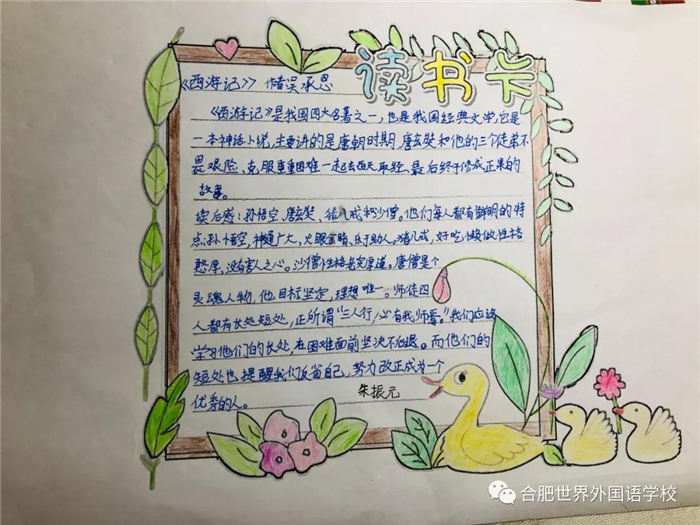 读书卡
《西游记》 吴承恩
《西游记》是我国四大名著之一,也是我国经典文学,它是
一本神话小说,主要讲的是唐朝时期,唐玄奘和他的三个徒弟不
畏艰险、克服重重困难一起去西天取经,最后终于修成正果的
故事。
读后感:孙悟空、唐玄奘、猪八戒和沙僧。他们每人都有鲜明的特
点:孙悟空,神通广大,火眼金睛、乐于助人。猪八戒,好吃懒做,性格
憨厚,没有害人之心。沙僧性格老实厚道。唐僧是个
灵魂人物,他目标坚定,理想唯一。师徒四
人都有长处短处,正所谓“三人行,必有我师焉。”我们应该
学习他们的长处,在困难面前坚决不后退。而他们的
短处也提醒我们反省自己,努力改正成为一个
优秀的人。
朱振元
合肥世界外国语学校